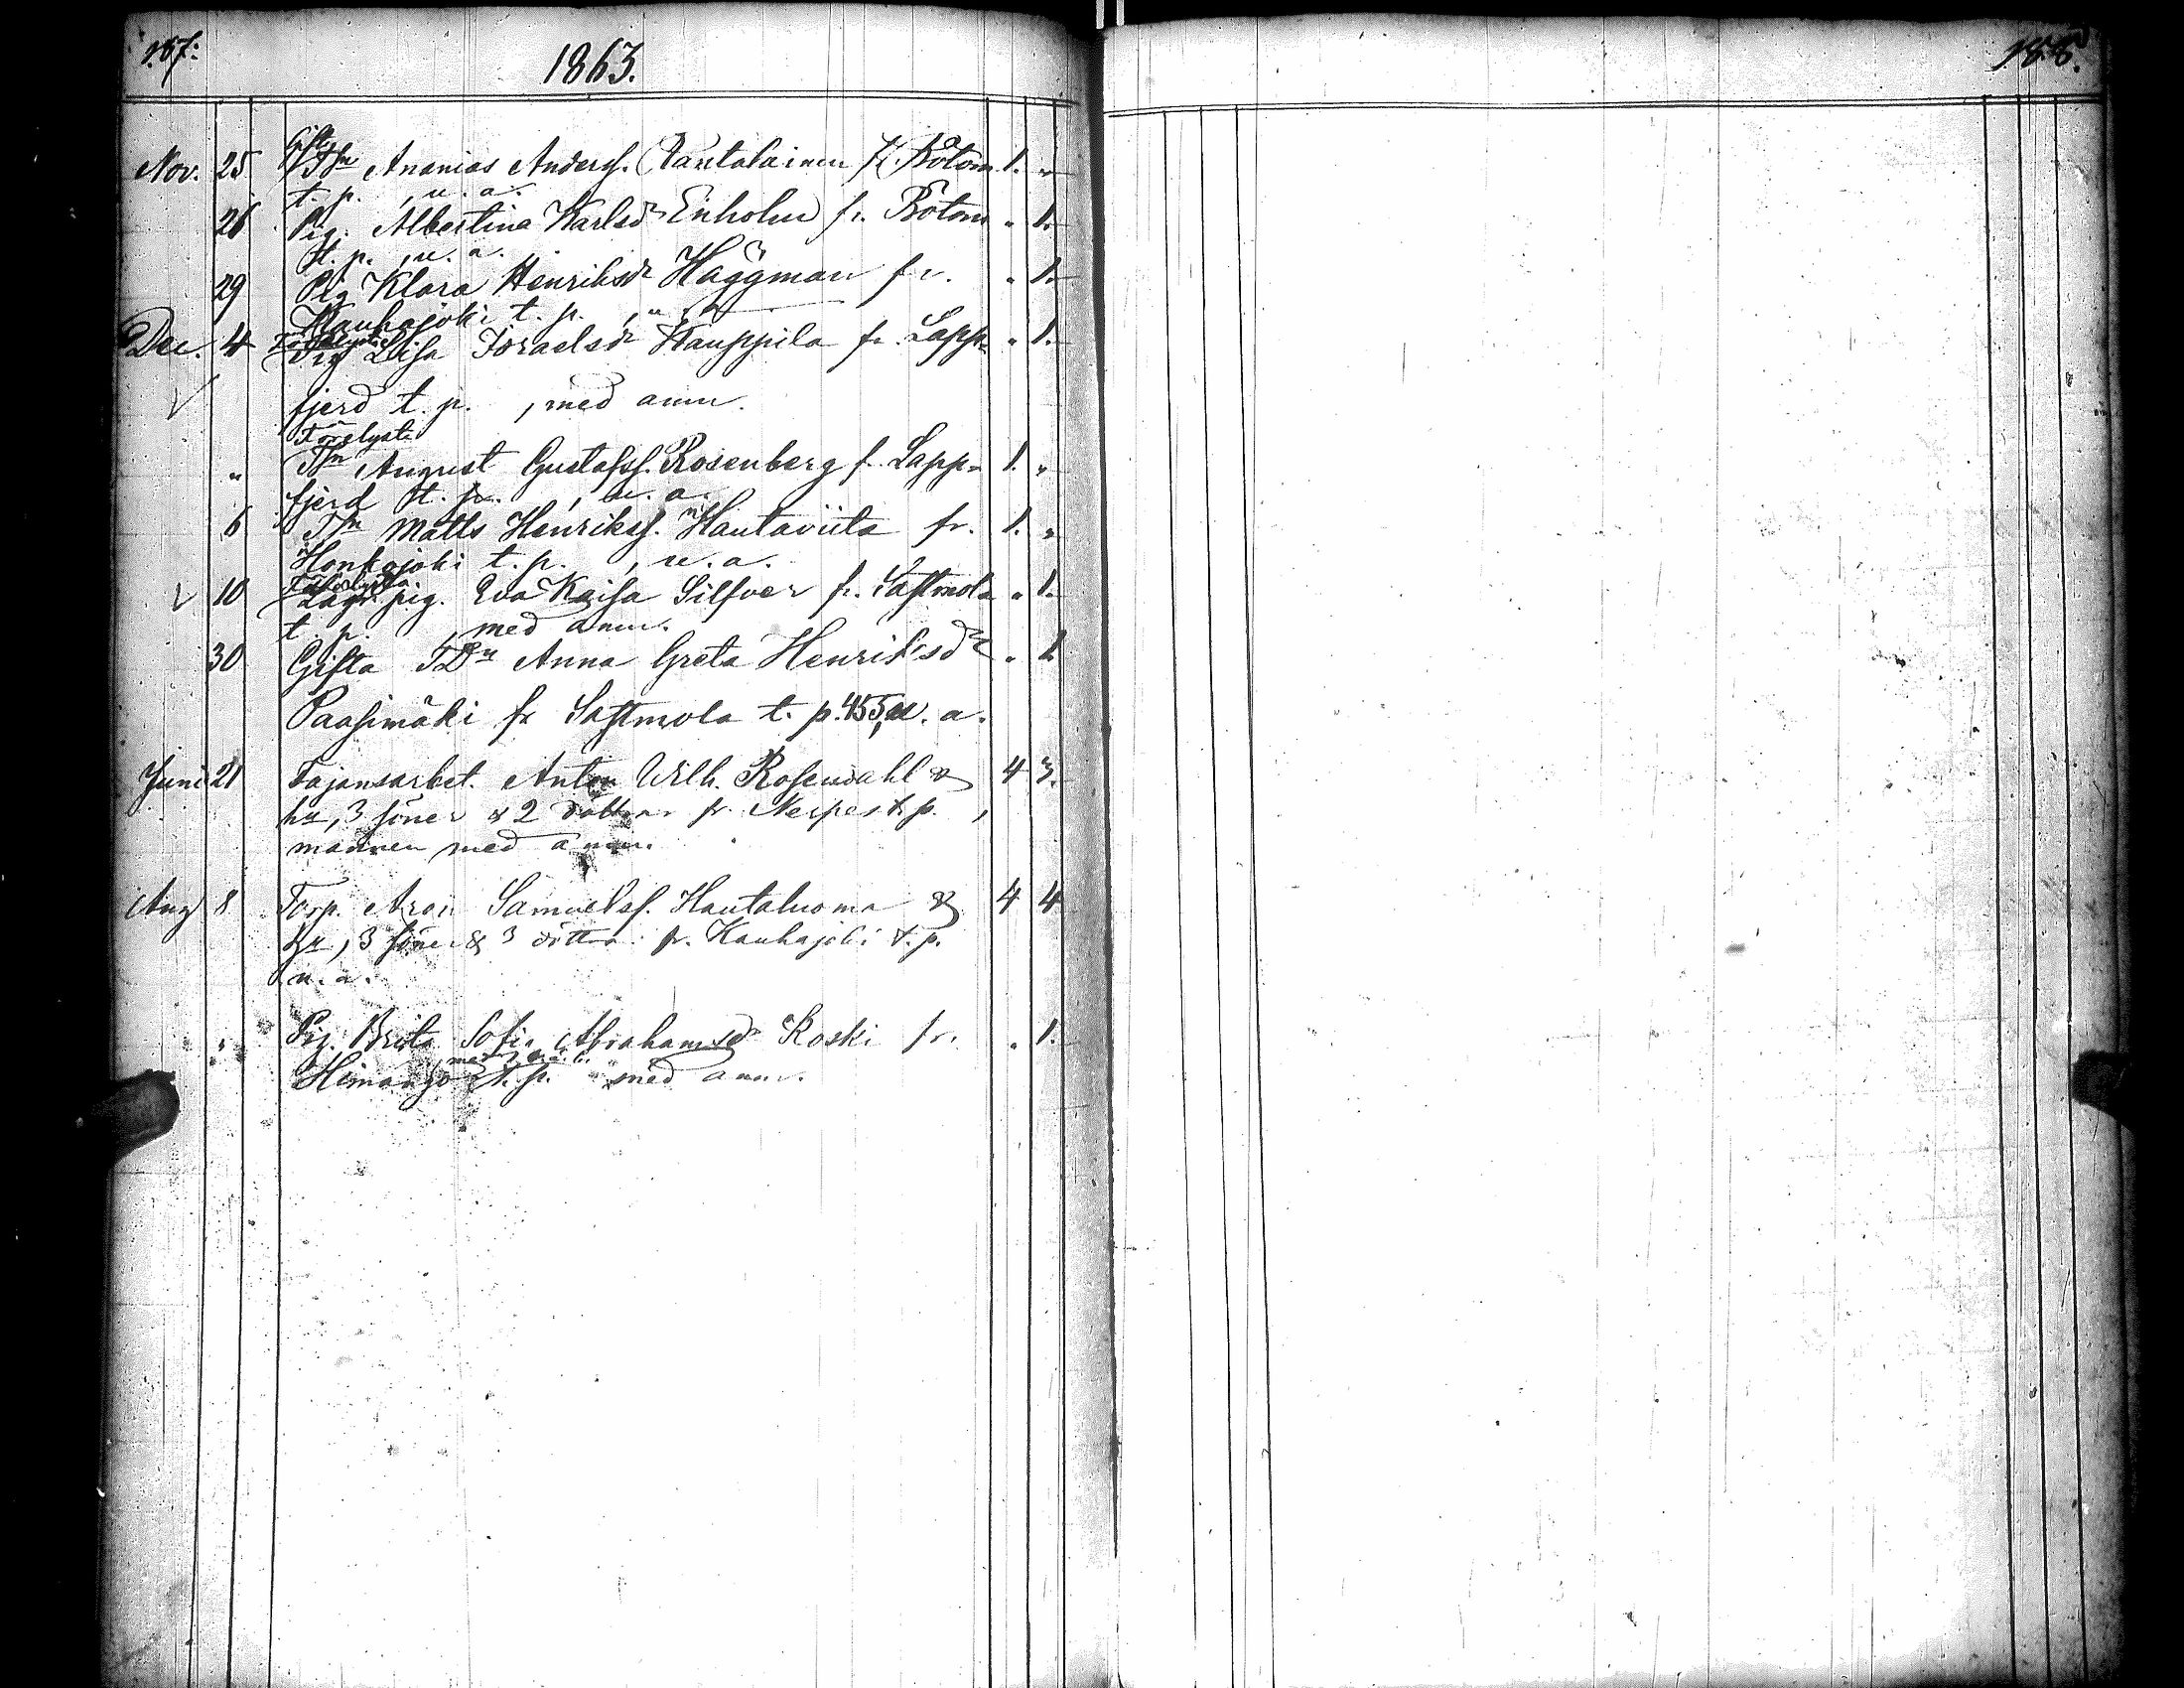 187:
1863.
188.
Gifte
Nov. 25 Dn Ananias Anderss. Rautalainen fr. Bötom 1. "
t. p. , u. a.
26 Pig. Albertina Karlsdr Enholm fr. Bötom " 1.
t. p. , u. a.
29 Pig Klara Henriksdr Häggman fr. " 1.
Kauhajoki t. p. , u. a.
Dec. 4 Pig Lisa Israelsdr Kauppila fr. Lapp= " 1.
fjerd t. p. , med anm.
Förelyste
" Dn August Gustafss. Rosenberg f. Lapp= 1. "
fjerd t. p. , u. a.
6 Dn Matts Henrikss. Hautaviita fr. 1. "
Honkajoki t. p. , u. a.
10 pig. Eva Kaisa Silfver fr. Sastmola " 1.
t. p. , med anm.
30 Gifta Anna Greta Henriksdr " 1.
Paasimäki fr Sastmola t. p. 455, u. a.
Juni 21 Fajansarbet. Anton Wilh. Rosendahl & 4 3.
hu, 3 söner & 2 döttrar fr. Nerpes t. p. ,
mannen med anm.
Aug 8 Torp. Aron Samuelss. Hautaluoma & 4 4
hu, 3 söner & 3 döttrar fr. Kauhajoki t. p.
u. a.
" Pig. Brita Sofia Abrahamsdr Koski fr. " 1.
Himango t. p. med anm.